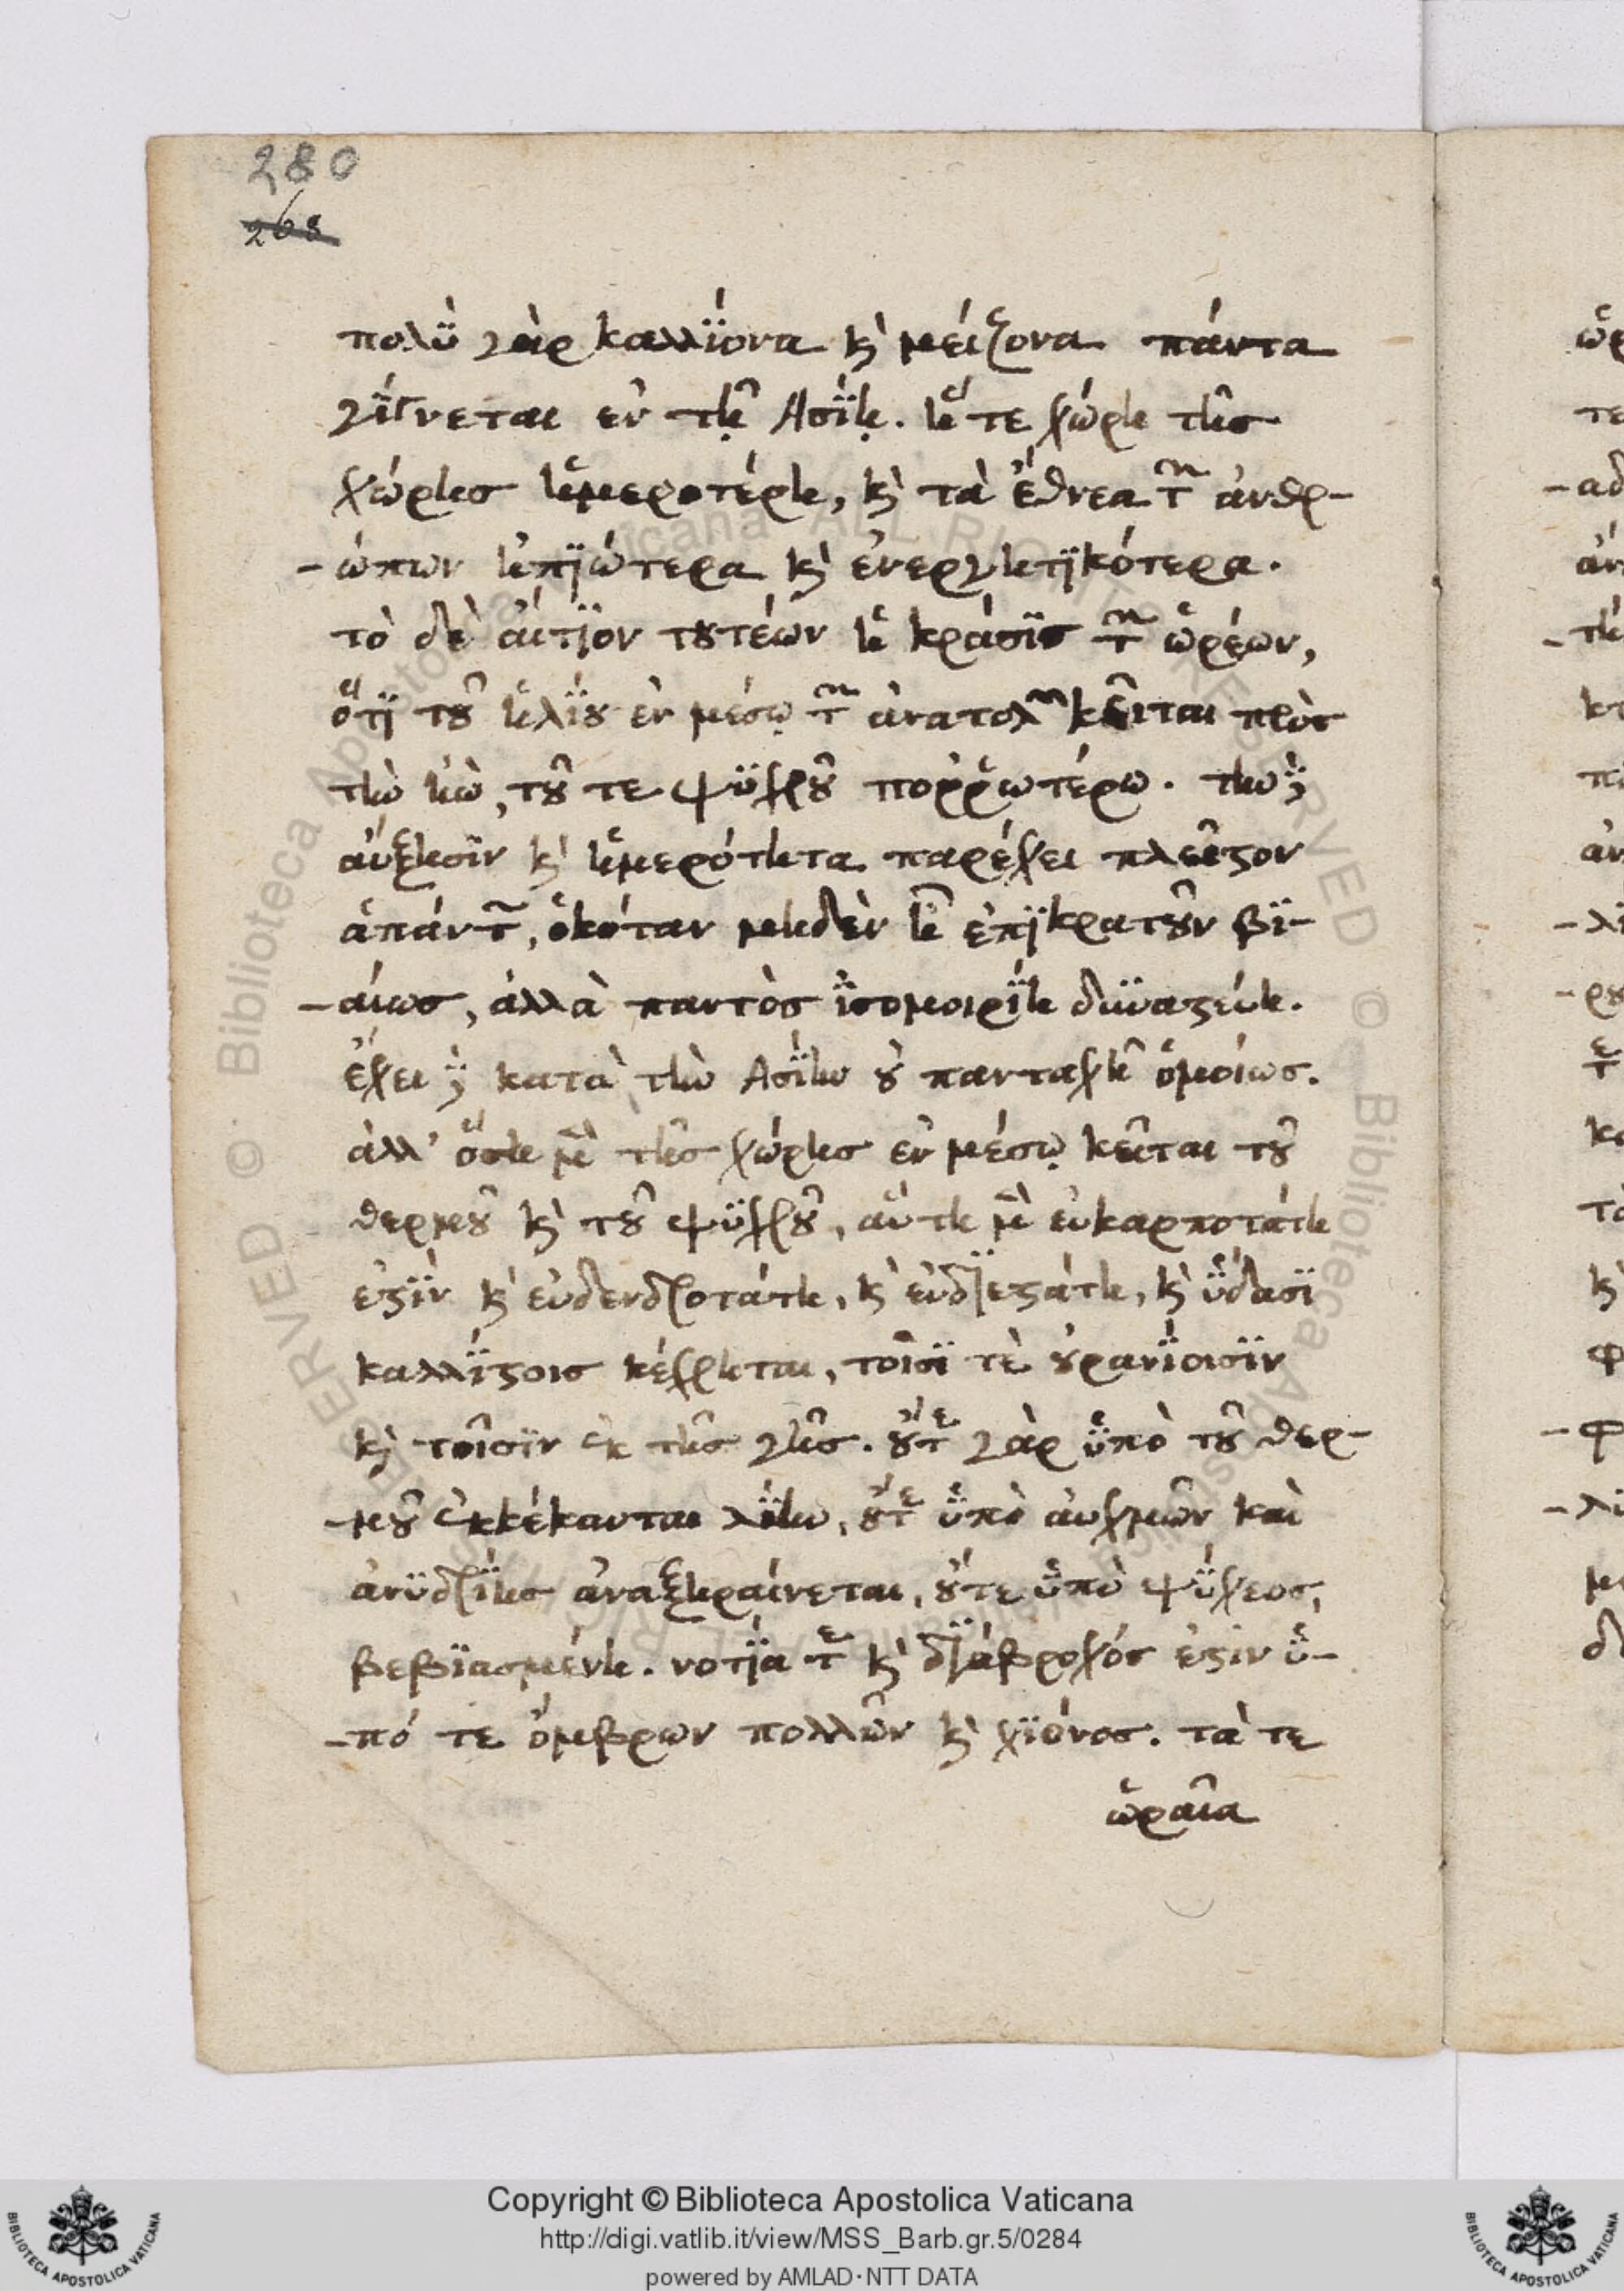 280
268
πολὺ γὰρ καλλίονα κὶ μείζονα πάντα
γίγνεται ἐν τῇ Ἀσίῃ. ἥ τε χώρη τῆς
χώρης ἡμεροτέρη, κὶ τὰ ἔθνεα τῶν ἀνθρ-
-ώπων ἠπιώτερα κὶ ἐνεργητικότερα.
τὸ δὲ αἴτιον τουτέων ἡ κράσις τῶν ὡρέων,
ὅτι τοῦ ἡλίου ἐν μέσῳ τῶν ἀνατολῶν κεῖται πρὸς
τὴν ἠὼ, τοῦ τε ψυχροῦ ποῤῥωτέρω. τὴν δὲ
αὔξησιν κὶ ἡμερότητα παρέχει πλεῖστον
ἁπάντων, ὁκόταν μηδὲν ᾖ ἐπικρατοῦν βι-
-αίως, ἀλλὰ παντὸς ἰσομοιρίη δυναστεύη.
ἔχει δὲ κατὰ τὴν Ἀσίην οὐ πανταχῆ ὁμοίως.
ἀλλ' ὅση μὲν τῆς χώρης ἐν μέσῳ κεῖται τοῦ
θερμοῦ κὶ τοῦ ψυχροῦ, αὕτη μὲν εὐκαρποτάτη
ἐστὶν κὶ εὐδενδροτάτη, κὶ εὐδιεστάτη, κὶ ὕδασι
καλλίστοις κέχρηται, τοῖσί τὲ οὐρανίοισιν
κὶ τοῖσιν ἐκ τῆς γῆς. οὔτε γὰρ ὑπὸ τοῦ θερ-
-μοῦ ἐκκέκαυται λίην, οὔτε ὑπὸ αὐχμῶν καὶ
ἀνυδρίης ἀναξηραίνεται, οὔτε ὑπὸ ψύχεος,
βεβιασμένη. νοτία τε κὶ διάβροχός ἐστιν ὑ-
-πό τε ὄμβρων πολλῶν κὶ χιόνος. τὰ τε
ὡραῖα
Copyright © Biblioteca Apostolica Vaticana
http://digi.vatlib.it/view/MSS_Barb.gr.5/0284
powered by AMLAD·NTT DATA